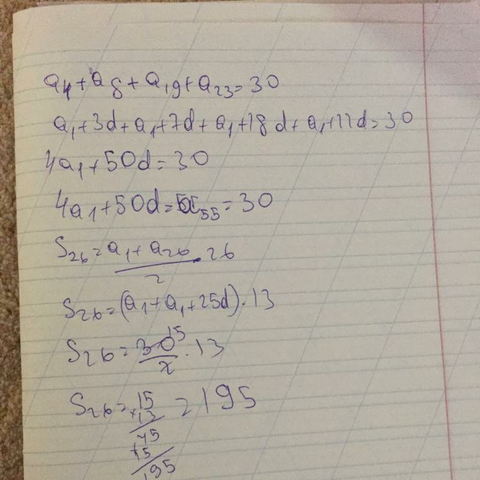 a4 + a8 + a19 + a23 = 30
a1 + 3d + a1 + 7d + a1 + 18d + a1 + 11d = 30
4a1 + 50d = 30
4a1 + 50d = 55 = 30
S26 = a1 + a26 / 2 · 26
S26 = (a1 + a1 + 25d) · 13
S26 = 30 15 / 2 · 13
S26 = 15 = 195
+13
45
+5
195